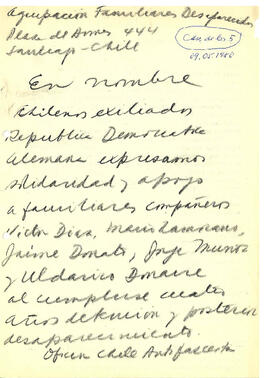 Agrupación Familiares Desaparecidos
Plaza de Armas 444
Santiago-Chile
Caso de los 5
09.05.1980
En nombre
Chilenos exiliados
Republica Democratica
Alemana expresamos
solidaridad y apoyo
a familiares compañeros
Victor Diaz, Mario Zamorano,
Jaime Donato, Jorge Muñoz
y Uldarico Donaire
al cumplirse cuatro
años detencion y posterior
desaparecimiento.
Oficin Chile Antifascista